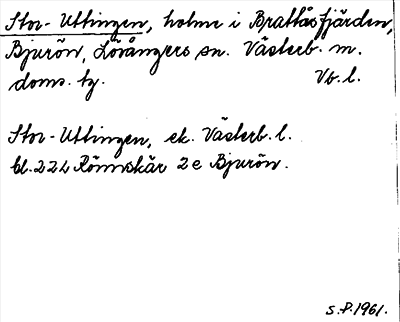 Stor-Uttingen, holme i Brattåsfjärden,
Bjurön, Lövångers sn. Västerb. m.
doms. tg. Vb. l.
Stor-Uttingen, ek. Västerb. l.
bl. 22L Rönnskär 2e Bjurön.
S.P. 1961.